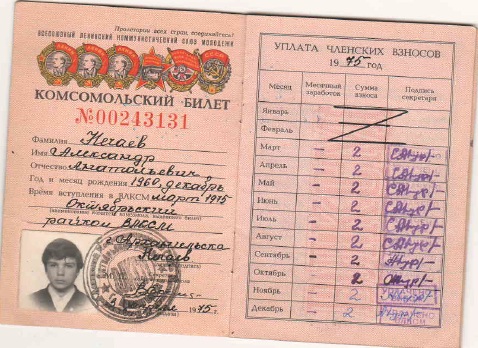 Пролетарии всех стран, соединяйтесь!
ВСЕСОЮЗНЫЙ ЛЕНИНСКИЙ КОММУНИСТИЧЕСКИЙ СОЮЗ МОЛОДЕЖИ
КОМСОМОЛЬСКИЙ БИЛЕТ
№00243131
Фамилия Нечаев
Имя Александр
Отчество Анатольевич
Год и месяц рождения 1960, декабрь
Время вступления в ВЛКСМ март 1975
Октябрьский
райком ВЛКСМ
г. Архангельска
1975 г.
УПЛАТА ЧЛЕНСКИХ ВЗНОСОВ
1975 год
Месяц Месячный заработок Сумма взноса Подпись секретаря
Январь
Февраль
Март - 2
Апрель - 2
Май - 2
Июнь - 2
Июль - 2
Август - 2
Сентябрь - 2
Октябрь 2
Ноябрь - 2
Декабрь - 2